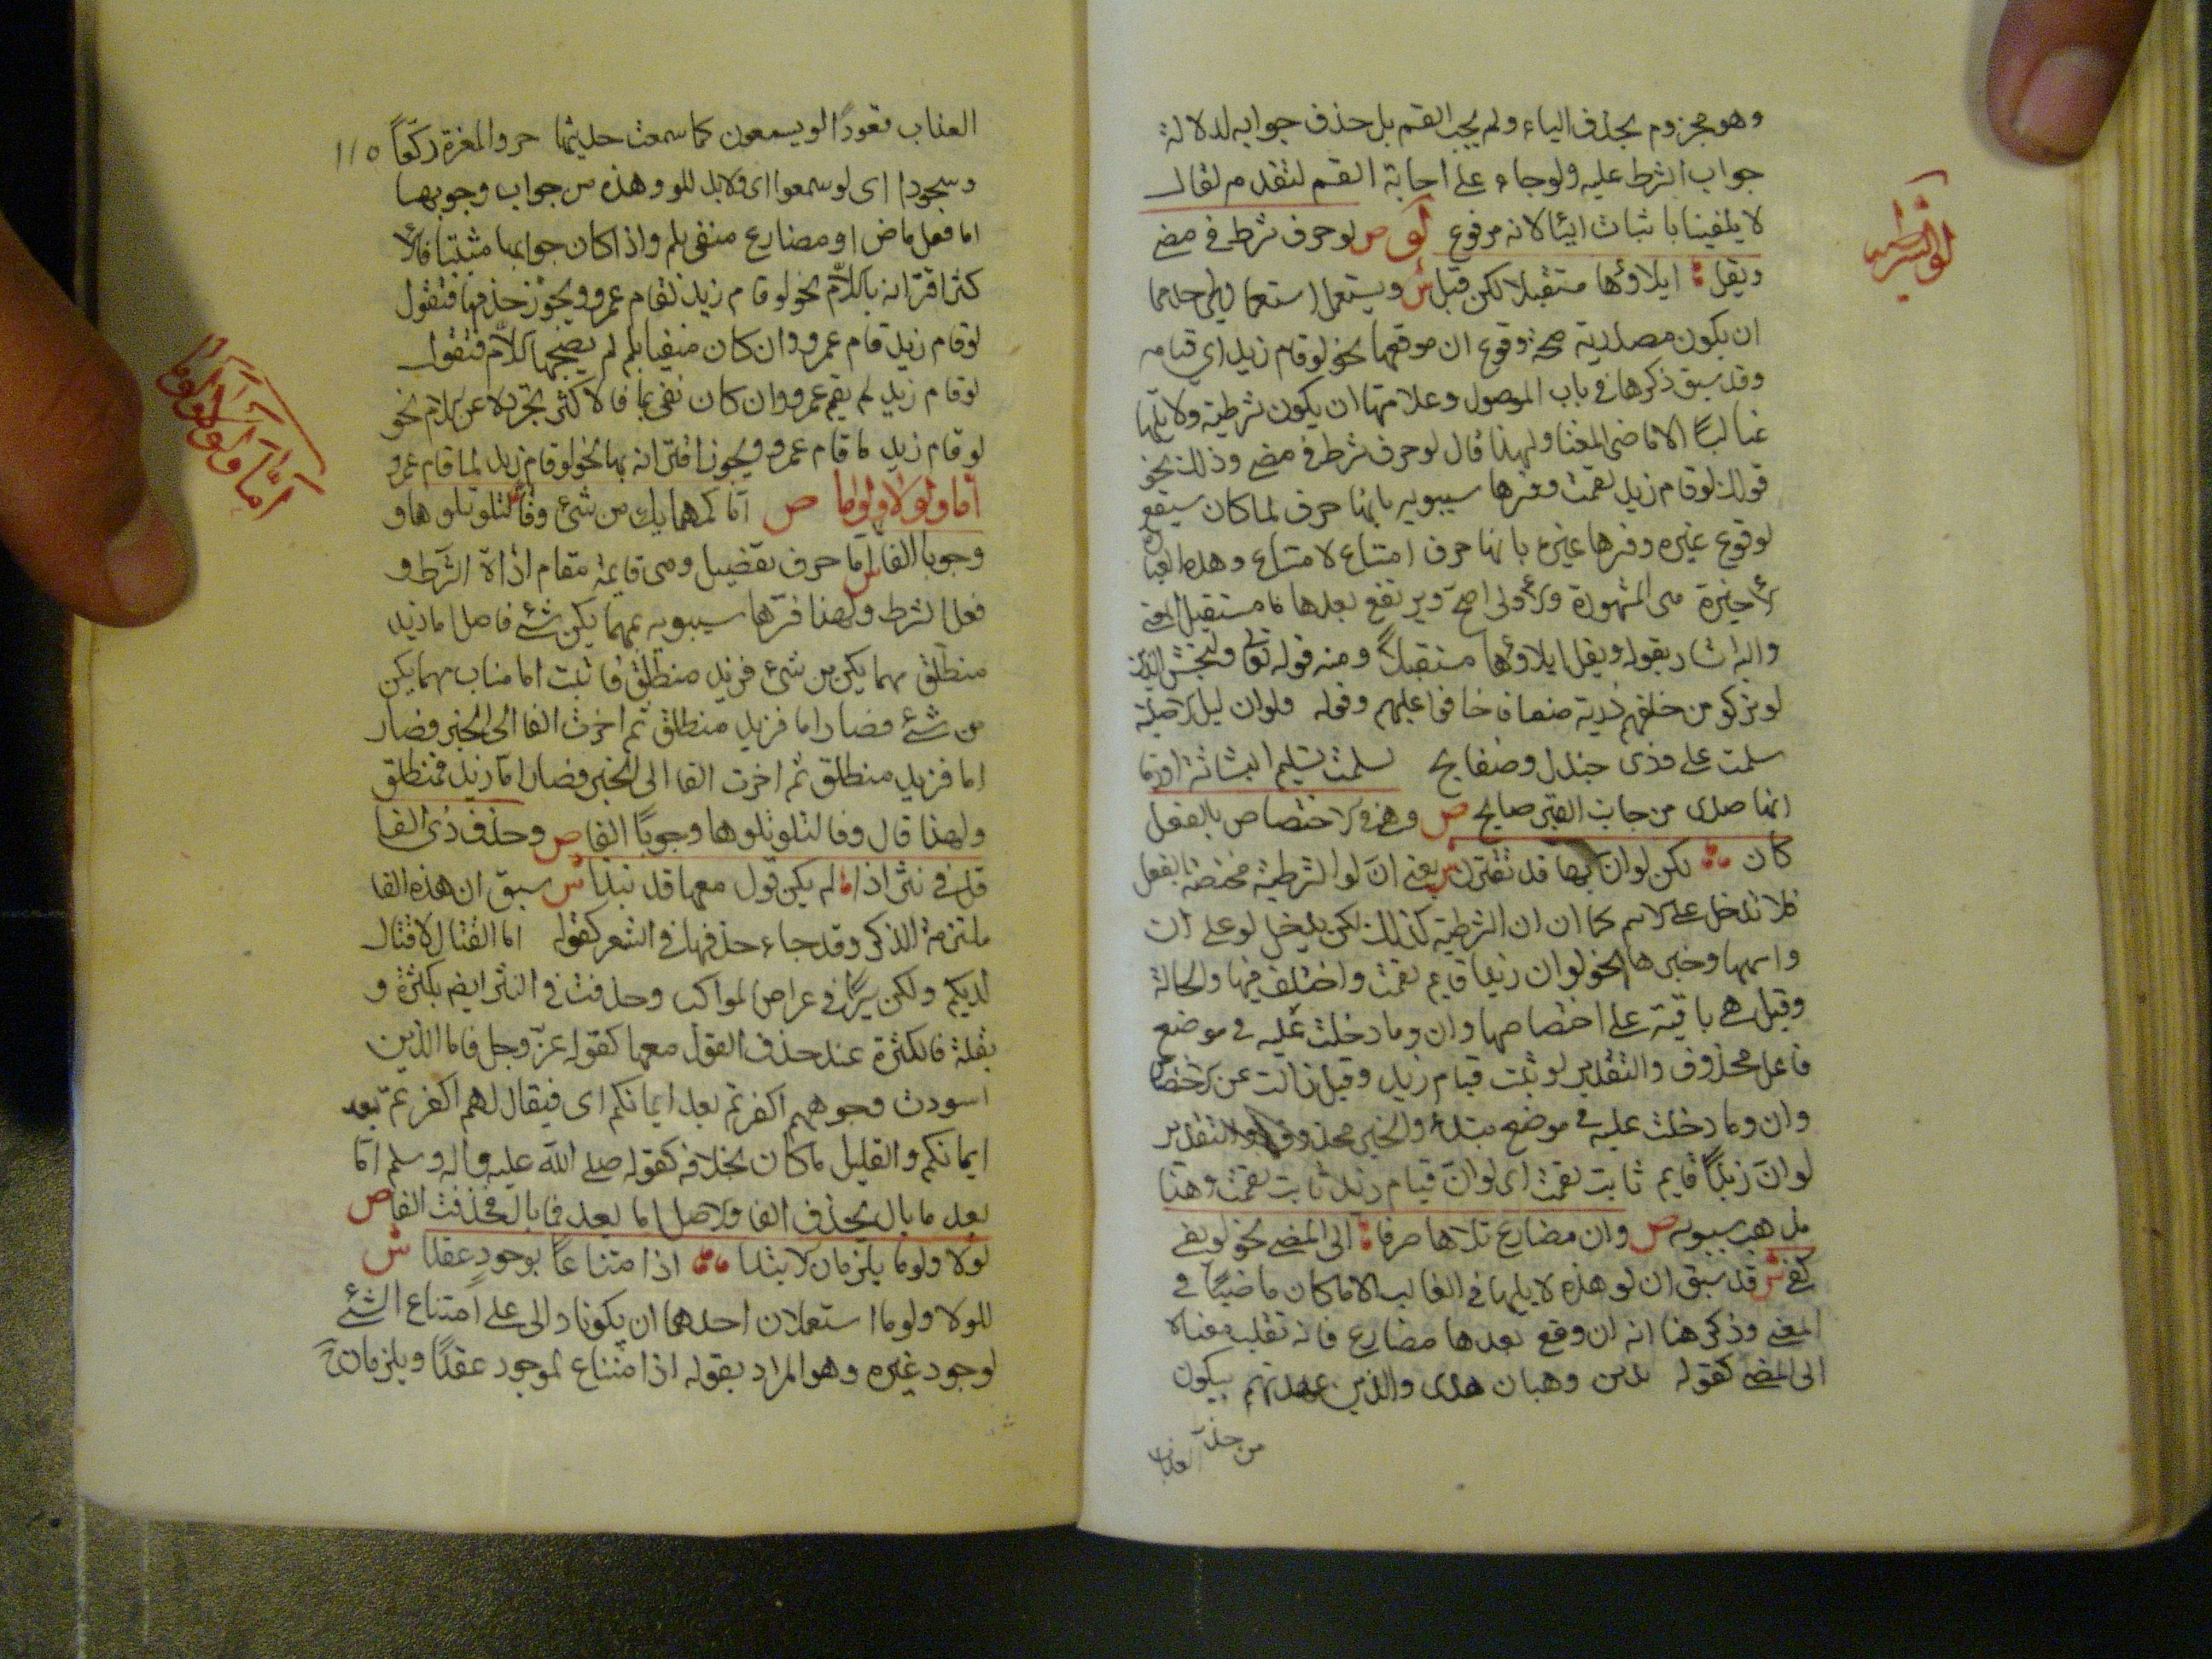 وهو مجزوم بحذف الياء ولم يجب القسم بل حذف جوابه لدلالة
جواب الشرط عليه ولو جاء على اجابة القسم لتقدمه لقال
لا يلفينا باثبات اليا لانه مرفوع لو ص لو حرف شرط في مضي
ويقل ايلاؤها مستقبلا لكن قبل ش ويستعمل استعمالين احدهما
ان يكون مصدرية صحة وقوع ان موقعها نحو لو قام زيد اي قيامه
وقد سبق ذكرها في باب الموصول وعلامتها ان يكون شرطية ولا يليها
غالبا الا ماضي المعنا ولهذا قال لو حرف شرط في مضي وذلك نحو
قولك لو قام زيد لقمت وفسرها سيبويه بانها حرف لما كان سيقع
لوقوع غيره وفسرها غيره بانها حرف امتناع لامتناع وهذه العبارة
الاخيرة هي المشهورة والاولى اصح وير تقع بعدها ما مستقبل المعنى
واليه اشار بقوله ويقل ايلاؤها مستقبلا ومنه قوله تعالى وليخش الذين
لو تركو من خلفهم ذرية ضعافا خافوا عليهم وقوله ولو ان ليلى الاخيلية
سلمت علي وذي جندل وصفايح لسلمت تسليم البشاشة او زقا
اليها صدى من جانب القبر صايح ص وهي في الاختصاص بالفعل
كان لكن لو ان بها قد تقترن ش يعني ان لو الشرطية مختصة بالفعل
فلا تدخل على الاسم كما ان ان الشرطية كذلك لكن يدخل لو على ان
واسمها وخبرها نحو لو ان زيدا قايم لقمت واختلف فيها والحالة
وقيل هي باقية على اختصاصها وان وما دخلت عليه في موضع
فاعل محذوف والتقدير لو ثبت قيام زيد وقيل زالت عن الاختصاص
وان وما دخلت عليه في موضع مبتدا والخبر محذوف والتقدير
لو ان زيدا قايم ثابت لقمت اى لو ان قيام زيد ثابت لقمت وهذا
مذهب سيبويه ص وان مضارع تلاها صرفا الى المضي نحو لو يفي
كفى ش قد سبق ان لو هذه لا يليها في الغالب الا ما كان ماضيا في
المعنى وذكر هنا انه ان وقع بعدها مضارع فانه تقلب معناه
الى المضي كقوله مدين وهبان والذين عهدتهم يبكون
من حذر العذاب
لو الشرطيه
العذاب قعودا لو يسمعون كما سمعت حديثها خروا لعزة ركعا ١١٥
وسجودا اى لو سمعوا اى ولابد للو وهذه من جواب وجوبها
اما فعل ماض او مضارع منفي بلم واذا كان جوابها مثبتا فالا
كثر اقترانه باللام نحو لو قام زيد لقام عمرو ويجوز حذفها فتقول
لو قام زيد قام عمرو وان كان منفيا بلم لم يصحبها اللام فتقول
لو قام زيد لم يقم عمرو وان كان نفي بما فالاكثر تجرده عن اللام نحو
لو قام زيد ما قام عمرو ويجوز اقترانه بها نحو لو قام زيد لما قام عمرو
اما ولولا ولوما ص اما كمهما يك من شئ وفا لتلو تلوها و
وجوبا الفا ش اما حرف تفضيل وهي قايمة مقام اداة الشرط و
فعل الشرط ولهذا فسرها سيبويه بمهما يكن شئ فاصل اما زيد
منطلق مهما يكن من شئ فزيد منطلق فاثبت اما مناب مهما يكن
من شئ فصار اما فزيد منطلق ثم اخرت الفا الى الخبر فصار
اما فزيد منطلق ثم اخرت الفا الى الخبر فصار اما زيد فمنطلق
ولهذا قال وفا لتلو تلوها وجوبا الفا ص وحذف ذى الفا
قل في نثر اذا لم يكن قول معها قد نبذا ش سبق ان هذه الفا
ملتزمة الذكر وقد جاء حذفها في الشعر كقوله اما القتال لا قتال
لديكم ولكن سيرا في عراض المواكب وحذفت في النثر ايضم بكثرة و
بقلة فالكثرة عند حذف القول معها كقوله عز وجل فاما الذين
اسودت وجوههم اكفرتم بعد ايمانكم اى فيقال لهم اكفرتم بعد
ايمانكم والقليل ما كان بخلافه كقوله صلى الله عليه واله وسلم اما
بعد ما بال بحذف الفا والاصل اما بعد فما بال فحذفت الفا ص
لولا ولوما يلزمان الابتدا اذا امتناعا بوجود عقدا ش
للولا ولوما استعملان احدهما ان يكونا دالى على امتناع الشئ
لوجود غيره وهو المراد بقوله اذا امتناع لموجود عقدا ويلزمان
اما ولولا ولوما